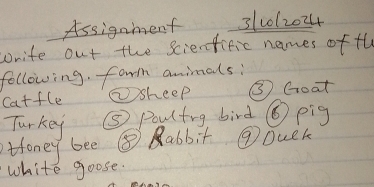 Assignment 3/10/2024
write out the Scientific names of the
following. farm animals:
cattle ② Sheep ③ Goat
Turkey ⑤ Poultry bird ⑥ pig
Honey bee ⑧ Rabbit. ⑨ Duck
white goose.